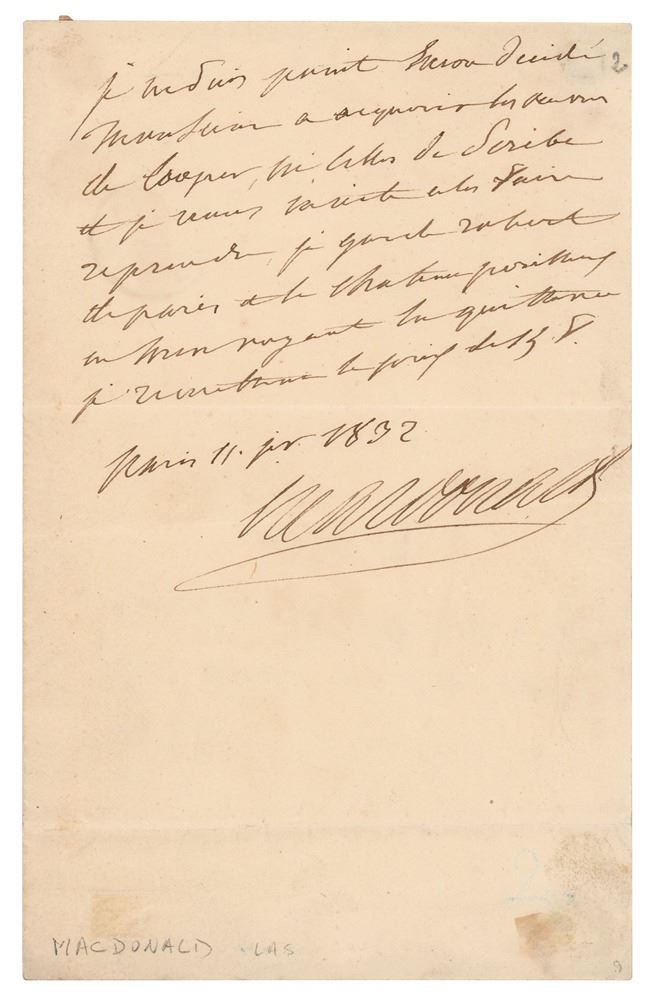 2
je ne suis point encore décidé
Monsieur a acquerir les œuvres
de Cooper, ni celles de Scribe
et je vous invite a les faire
reprendre, je garde robert
de paris et le chateau périlleux
en m'en voyant la quittance
je remettrai le prix de
paris 11. jer 1832
Macdonald
2
MACDONALD LAS